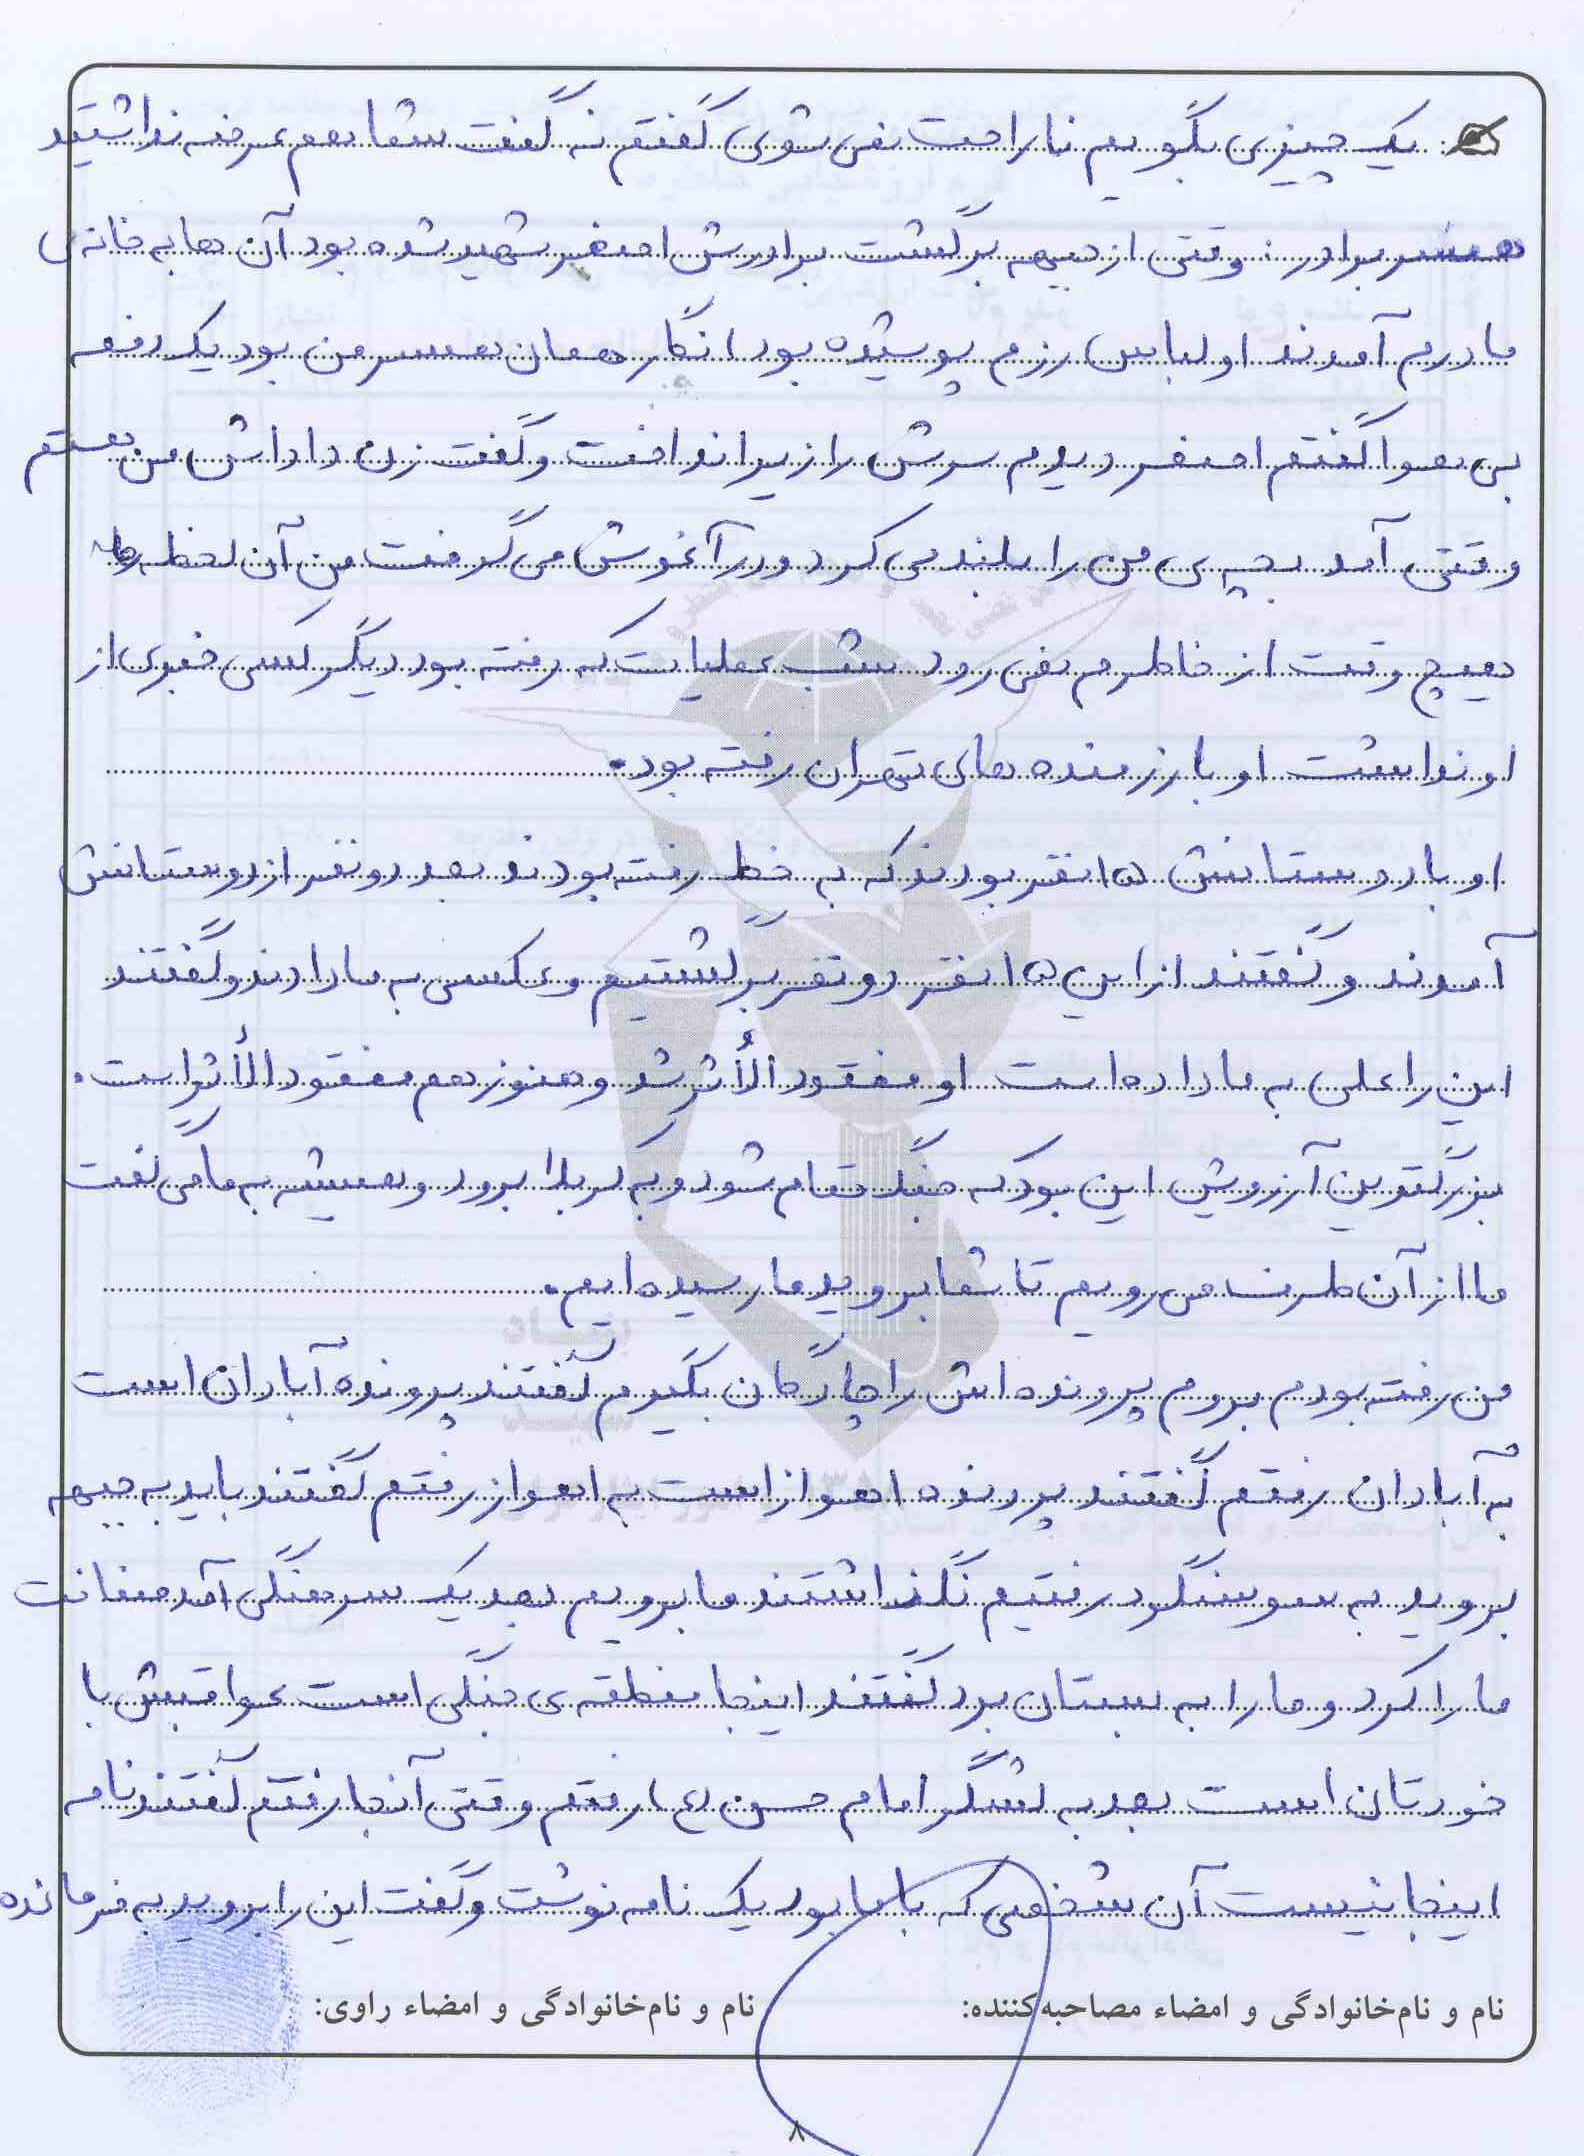 یک چیزی بگویم ناراحت نمی شوی گفتم نه گفت شما هم عرضه نداشتید
همسر برادر: وقتی از جبهه برگشت برادرش اصغر شهید شده بود آن ها به خانه ی
مادرم آمدند او لباس رزم پوشیده بود انگار همان همسر من بود یک دفعه
بی هوا گفتم اصغر دیدم سرش را زیر انداخت و گفت زن داداش من هستم
وقتی آمد بچه ی من را بلند می کرد و در آغوش می گرفت من آن لحظه ها
هیچ وقت از خاطرم نمی رود شب عملیات که رفته بود دیگر کسی خبری از
او نداشت او با رزمنده های تهران رفته بود.
او با دوستانش ۱۵ نفر بودند که به خط رفته بودند بعد دو نفر از دوستانش
آمدند و گفتند از این ۱۵ نفر دو نفر برگشتیم و عکسی به ما دادند و گفتند
این را علی به ما داده است او مفقود الأثر شد و هنوز هم مفقود الأثر است.
بزرگترین آرزویش این بود که جنگ تمام شود و به کربلا برود و همیشه به ما می گفت
ما از آن طرف می رویم تا شما بروید ما رسیده ایم.
من رفته بودم بروم پرونده اش را چارگان بگیرم گفتند پرونده آبادان است
به آبادان رفتم گفتند پرونده اهواز است به اهواز رفتم گفتند باید به جبهه
بروید به سوسنگرد رفتیم نگذاشتند ما برویم بعد یک سرهنگی آمد ضمانت
ما را کرد و ما را به بستان برد گفتند اینجا منطقه ی جنگی است عواقبش با
خودتان است بعد به لشگر امام حسن (ع) رفتم وقتی آنجا رفتم گفتند نامه
اینجا نیست آن شخصی که با ما بود یک نامه نوشت و گفت این را بروید به فرمانده
نام و نام‌خانوادگی و امضاء مصاحبه‌کننده: نام و نام‌خانوادگی و امضاء راوی:
۸